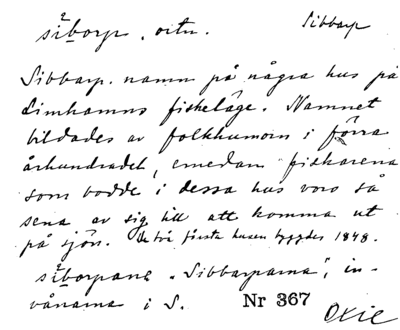 sìb̀orp, ortn. Sibbarp
Sibbarp. namn på några hus på
Limhamns fiskeläge. Namnet
bildades av folkhumorn i förra
århundradet, emedan fiskarena
som bodde i dessa hus voro så
sena av sig till att komma ut
på sjön. De två första husen byggdes 1848.
sìb̀orpana "Sibbarparna", in-
vånarna i S. Nr 367
Oxie